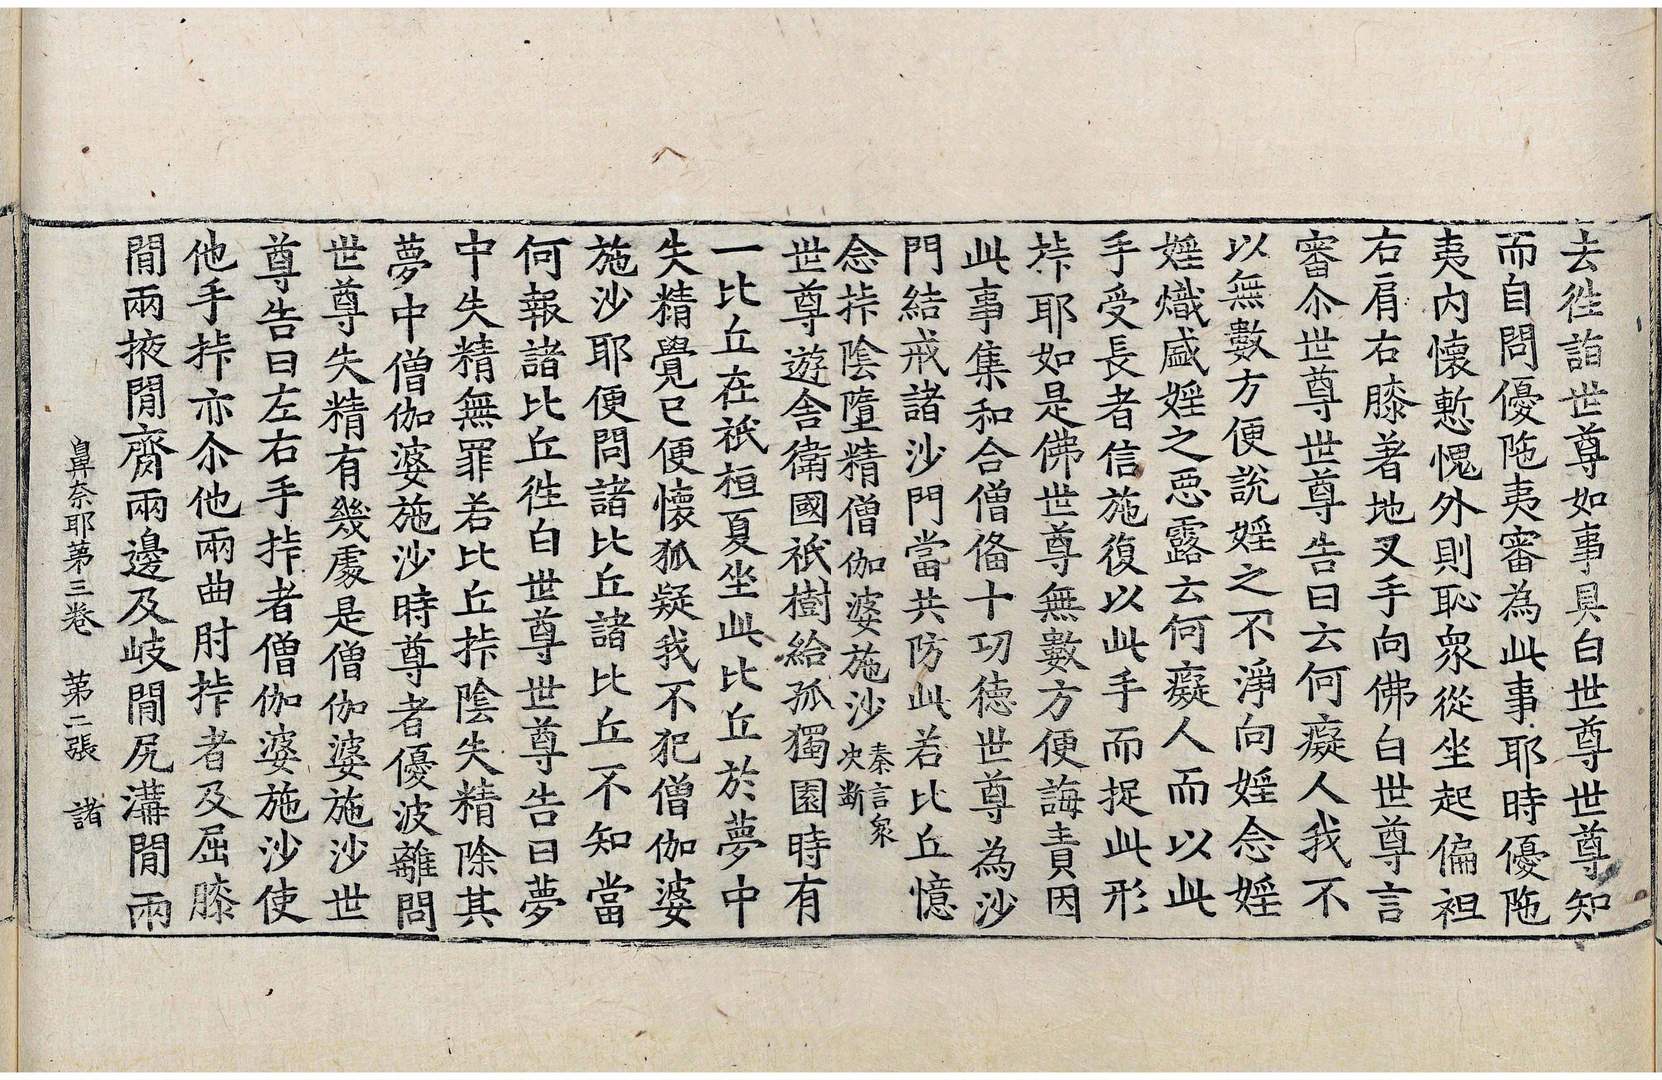 去徃詣世尊如事具白世尊世尊知
而自問優陁夷審為此事耶時優陁
夷內懷慙愧外則恥衆從坐起偏袒
右肩右膝著地叉手向佛白世尊言
審尒世尊世尊告曰云何癡人我不
以無數方便說婬之不淨向婬念婬
婬熾盛婬之惡露云何癡人而以此
手受長者信施復以此手而捉此形
挊耶如是佛世尊無數方便誨責因
此事集和合僧俻十功德世尊為沙
門結戒諸沙門當共防此若比丘憶
念挊陰墮精僧伽婆施沙秦言衆决斷
世尊遊舍衛國祇樹給孤獨園時有
一比丘在祇桓夏坐此比丘於夢中
失精覺已便懷狐疑我不犯僧伽婆
施沙耶便問諸比丘諸比丘不知當
何報諸比丘徃白世尊世尊告曰夢
中失精無罪若比丘挊陰失精除其
夢中僧伽婆施沙時尊者優波離問
世尊失精有幾處是僧伽婆施沙世
尊告曰左右手挊者僧伽婆施沙使
他手挊亦尒他兩曲肘挊者及屈膝
間兩掖間齊兩邊及岐間尻溝間兩
鼻奈耶第三卷 第二張 諸